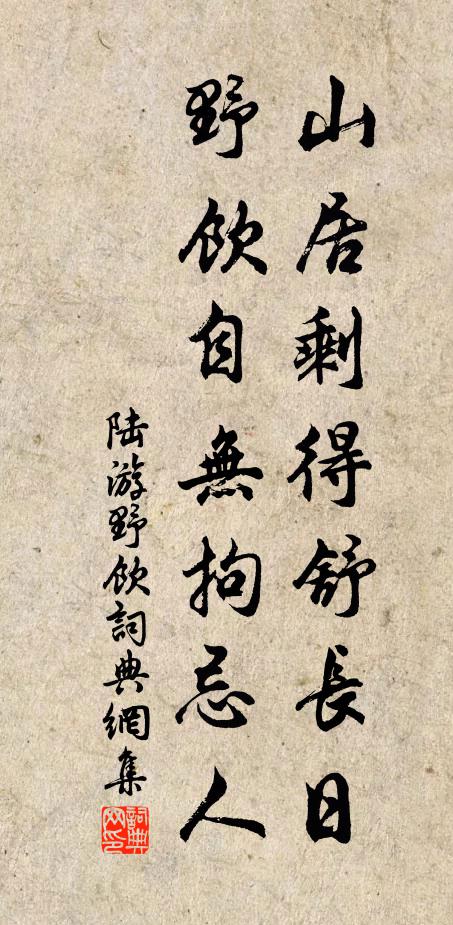 山居剩得舒長日
野飲自無拘忌人
陸游野飲詞典網集
詞典網印